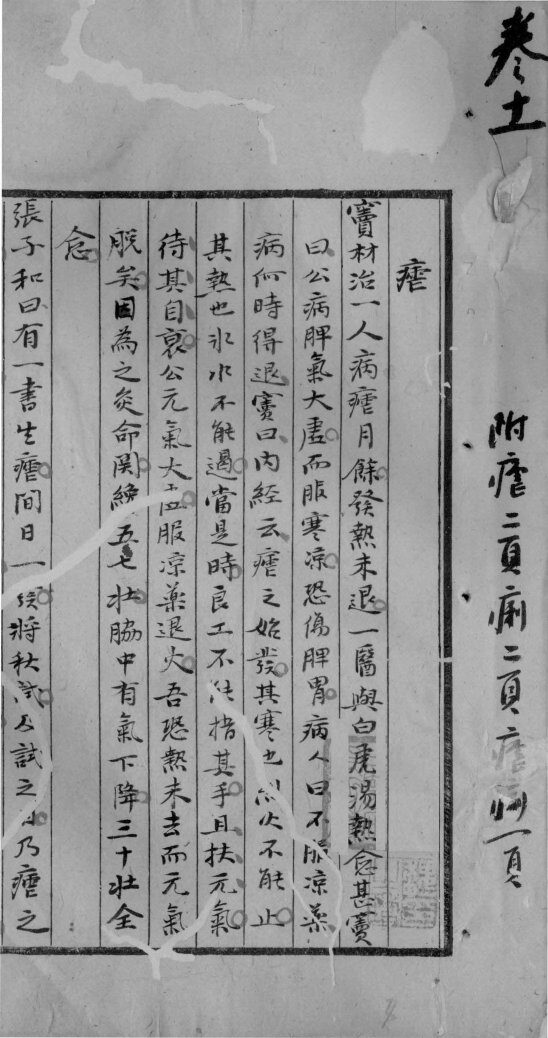 卷十
附瘧二頁痢二頁瘧痢一頁
瘧
竇材治一人病瘧月餘發熱未退一醫與白虎湯熱愈甚竇
曰公病脾氣大虛而服寒涼恐傷脾胃病人曰不服凉藥
病何時得退竇曰內經云瘧之始發其寒也烈火不能止
其熱也氷水不能遏當是時良工不能措其手且扶元氣
待其自衰公元氣大虛服凉藥退火吾恐熱未去而元氣
脫矣因為之灸命関纔五七壯脇中有氣下降三十壯全
愈
張子和曰有一書生瘧間日一發將秋試及試之日乃瘧之